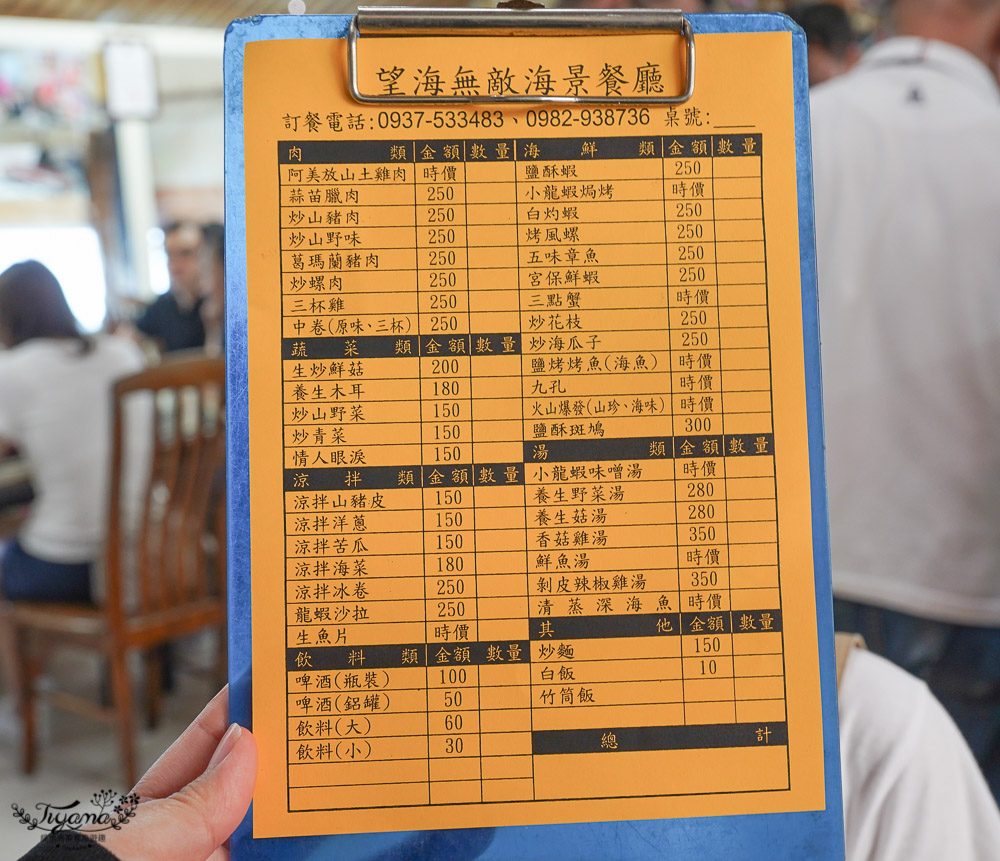 望海無敵海景餐廳
訂餐電話:0937-533483、0982-938736 桌號:____
肉 類 金額 數量
阿美放山土雞肉 時價
蒜苗臘肉 250
炒山豬肉 250
炒山野味 250
葛瑪蘭豬肉 250
炒螺肉 250
三杯雞 250
中卷(原味、三杯) 250
蔬 菜 類 金額 數量
生炒鮮菇 200
養生木耳 180
炒山野菜 150
炒青菜 150
情人眼淚 150
涼 拌 類 金額 數量
涼拌山豬皮 150
涼拌洋蔥 150
涼拌苦瓜 150
涼拌海菜 180
涼拌冰卷 250
龍蝦沙拉 250
生魚片 時價
飲 料 類 金額 數量
啤酒(瓶裝) 100
啤酒(鋁罐) 50
飲料(大) 60
飲料(小) 30
海 鮮 類 金額 數量
鹽酥蝦 250
小龍蝦焗烤 時價
白灼蝦 250
烤風螺 250
五味章魚 250
宮保鮮蝦 250
三點蟹 時價
炒花枝 250
炒海瓜子 250
鹽烤烤魚(海魚) 時價
九孔 時價
火山爆發(山珍、海味) 時價
鹽酥斑鳩 300
湯 類 金額 數量
小龍蝦味噌湯 時價
養生野菜湯 280
養生菇湯 280
香菇雞湯 350
鮮魚湯 時價
剝皮辣椒雞湯 350
清蒸深海魚 時價
其 他 金額 數量
炒麵 150
白飯 10
竹筒飯
總 計
Tiyama